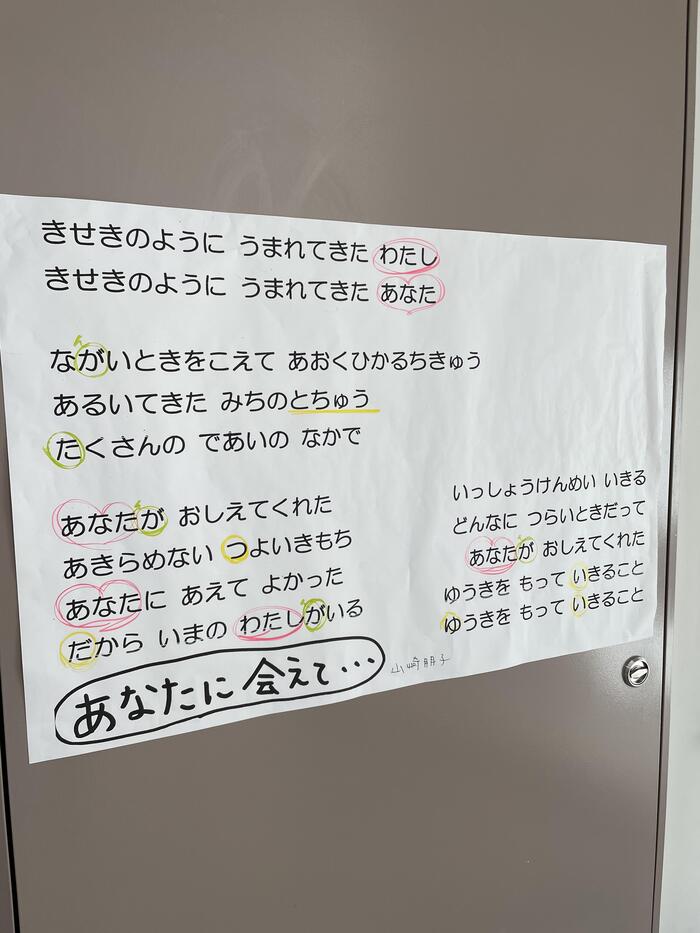 きせきのように うまれてきた わたし
きせきのように うまれてきた あなた
ながいときをこえて あおくひかるちきゅう
あるいてきた みちのとちゅう
たくさんの であいの なかで
あなたが おしえてくれた
あきらめない つよいきもち
あなたに あえて よかった
だから いまの わたしがいる
あなたに会えて・・・
いっしょうけんめい いきる
どんなに つらいときだって
あなたが おしえてくれた
ゆうきを もって いきること
ゆうきを もって いきること
山崎朋子